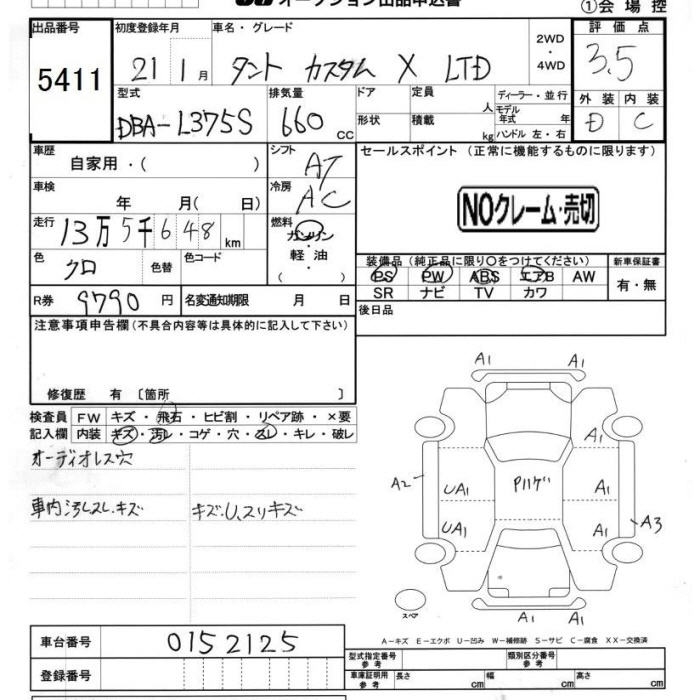 オークション出品申込書
①会場控
出品番号 初度登録年月 車名・グレード 2WD・4WD 評価点
5411 21 1月 タント カスタム X LTD 3.5
型式 排気量 ドア 定員 人 ディーラー・並行 外装 内装
DBA-L375S 660 CC 形状 積載 kg モデル年式 年 ハンドル 左・右 D C
車歴 自家用・( ) シフト AT セールスポイント (正常に機能するものに限ります)
車検 年 月( 日) 冷房 AC
NOクレーム・売切
走行 13万5千648km 燃料 ガソリン
軽油
( )
色 クロ 色替 色コード 装備品(純正品に限り○をつけてください) 新車保証書
PS PW ABS エアB AW 有・無
R券 9790円 名変通知期限 月 日 SR ナビ TV カワ
後日品
注意事項申告欄(不具合内容等は具体的に記入して下さい)
修復歴 有 〔箇所 〕
検査員 FW キズ・飛石・ヒビ割・リペア跡・×要
記入欄 内装 キズ・汚レ・コゲ・穴・スレ・キレ・破レ
オーディオレス穴
車内汚レスレ.キズ キズ.U.スリキズ
A1 A1
A1
A2 UA1 Pハゲ A1
UA1 A1 A3
スペア A1 A1
A-キズ E-エクボ U-凹み W-補修跡 S-サビ C-腐食 XX-交換済
車台番号 0152125
型式指定番号 参考 類別区分番号 参考
登録番号 車庫証明用 参考 長さ cm 幅 cm 高さ cm